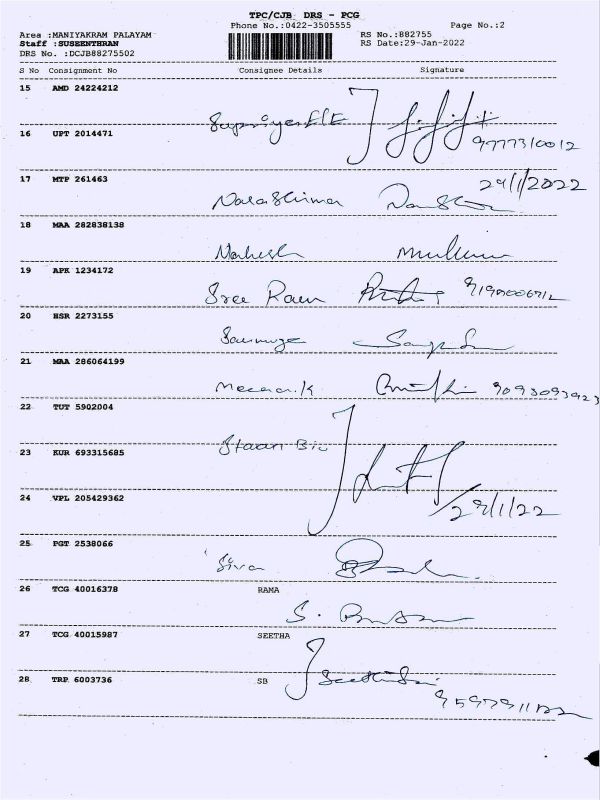 TPC/CJB DRS - PCG
Phone No.:0422-3505555 Page No.:2
Area :MANIYAKRAM PALAYAM RS No.:882755
Staff :SUSEENTHRAN RS Date:29-Jan-2022
DRS No. :DCJB88275502
S No Consignment No Consignee Details Signature
15 AMD 24224212
16 UPT 2014471
9777310012
17 MTP 261463 29/1/2022
Narashiman
18 MAA 282838138
Mahesh
19 APK 1234172
Sree Ram
20 HSR 2273155
21 MAA 286064199
Meena.K 9093093923
22 TUT 5902004
23 KUR 693315685
24 VPL 205429362
29/1/22
25 PGT 2538066
Siva
26 TCG 40016378 RAMA
27 TCG 40015987 SEETHA
28 TRP 6003736 SB